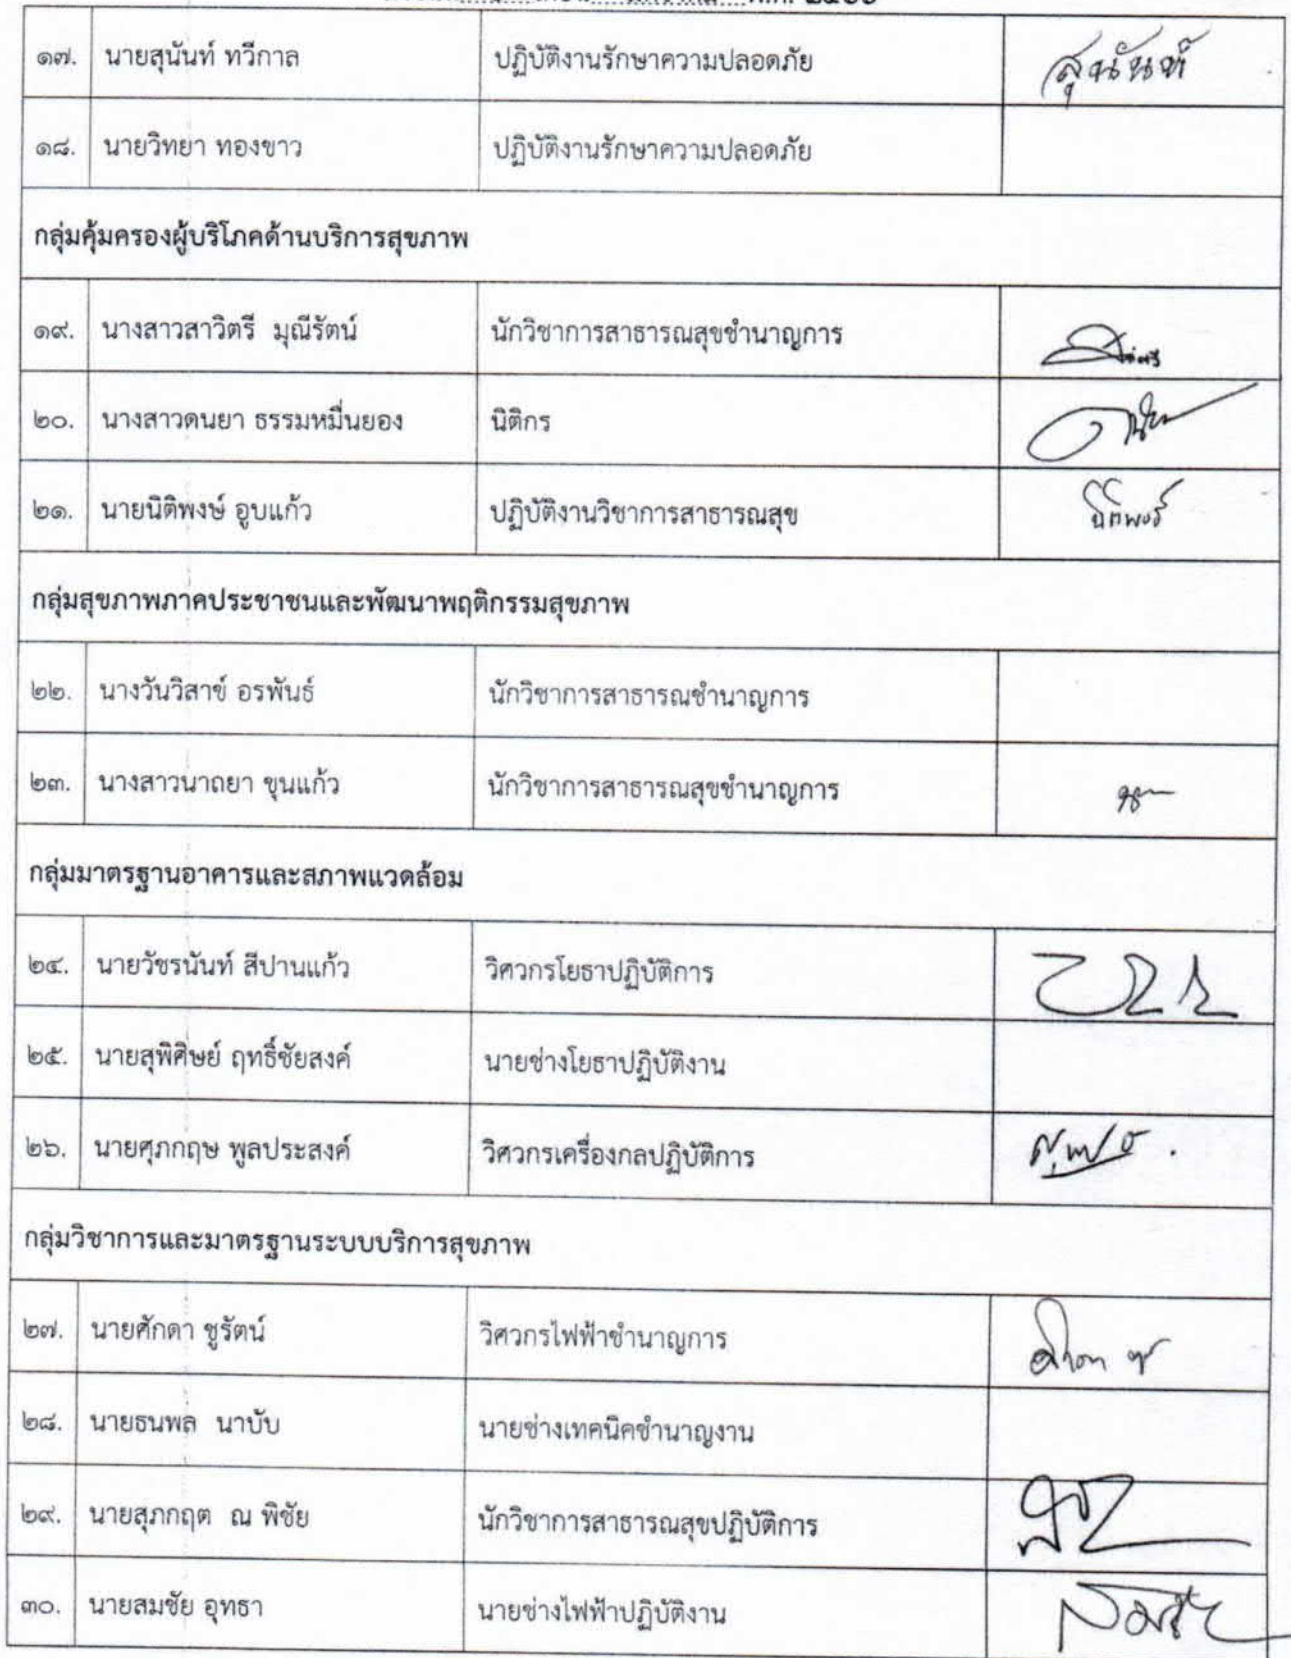 พ.ศ. ๒๕๖๖
๑๗. นายสุนันท์ ทวีกาล ปฏิบัติงานรักษาความปลอดภัย สุนันท์
๑๘. นายวิทยา ทองขาว ปฏิบัติงานรักษาความปลอดภัย
กลุ่มคุ้มครองผู้บริโภคด้านบริการสุขภาพ
๑๙. นางสาวสาวิตรี มุณีรัตน์ นักวิชาการสาธารณสุขชำนาญการ
๒๐. นางสาวดนยา ธรรมหมื่นยอง นิติกร
๒๑. นายนิติพงษ์ อูบแก้ว ปฏิบัติงานวิชาการสาธารณสุข
กลุ่มสุขภาพภาคประชาชนและพัฒนาพฤติกรรมสุขภาพ
๒๒. นางวันวิสาข์ อรพันธ์ นักวิชาการสาธารณชำนาญการ
๒๓. นางสาวนาถยา ขุนแก้ว นักวิชาการสาธารณสุขชำนาญการ
กลุ่มมาตรฐานอาคารและสภาพแวดล้อม
๒๔. นายวัชรนันท์ สีปานแก้ว วิศวกรโยธาปฏิบัติการ
๒๕. นายสุพิศิษย์ ฤทธิ์ชัยสงค์ นายช่างโยธาปฏิบัติงาน
๒๖. นายศุภกฤษ พูลประสงค์ วิศวกรเครื่องกลปฏิบัติการ
กลุ่มวิชาการและมาตรฐานระบบบริการสุขภาพ
๒๗. นายศักดา ชูรัตน์ วิศวกรไฟฟ้าชำนาญการ
๒๘. นายธนพล นาบับ นายช่างเทคนิคชำนาญงาน
๒๙. นายสุภกฤต ณ พิชัย นักวิชาการสาธารณสุขปฏิบัติการ
๓๐. นายสมชัย อุทธา นายช่างไฟฟ้าปฏิบัติงาน